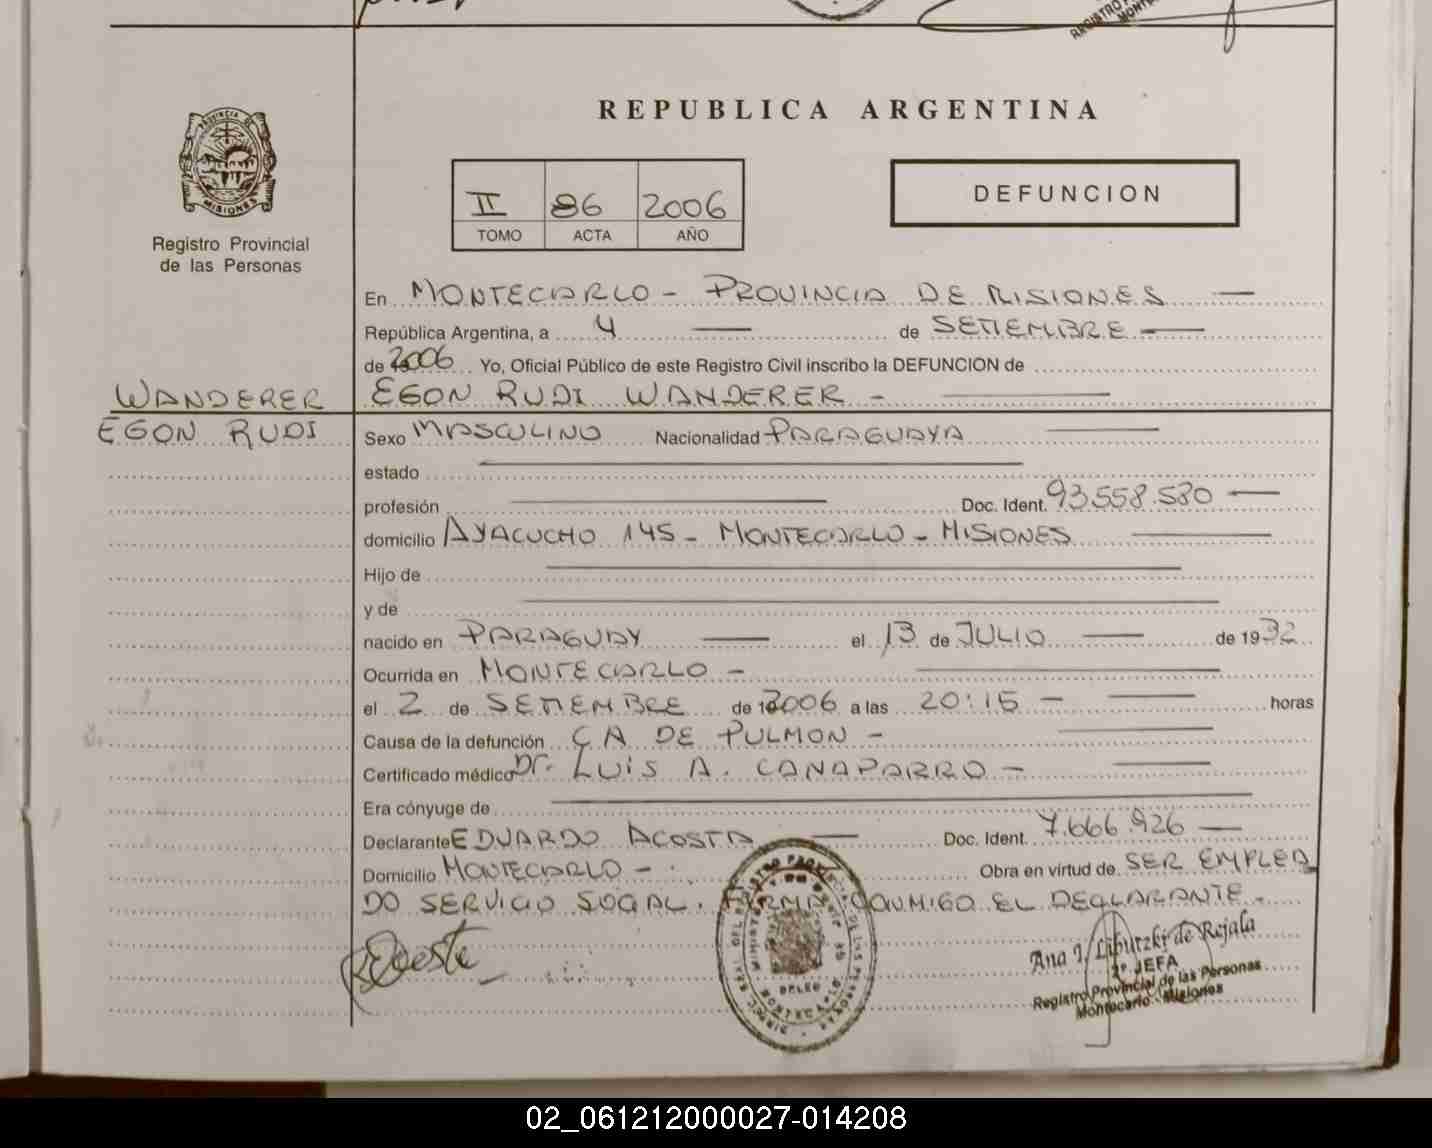 REPUBLICA ARGENTINA
PROVINCIA DE
MISIONES
Registro Provincial
de las Personas
II 86 2006
TOMO ACTA AÑO
DEFUNCION
En MONTECARLO - PROVINCIA DE MISIONES
República Argentina, a 4 de SETIEMBRE
de 2006 Yo, Oficial Público de este Registro Civil inscribo la DEFUNCION de
WANDERER
EGON RUDI
EGON RUDI WANDERER -
Sexo MASCULINO Nacionalidad PARAGUAYA
estado
profesión Doc. Ident. 93.558.580
domicilio AYACUCHO 145 - MONTECARLO - MISIONES
Hijo de
y de
nacido en PARAGUAY el 13 de JULIO de 1932
Ocurrida en MONTECARLO -
el 2 de SETIEMBRE de 2006 a las 20:15 - horas
Causa de la defunción CA DE PULMON -
Certificado médico Dr. LUIS A. CANAPARRO -
Era cónyuge de
Declarante EDUARDO ACOSTA Doc. Ident. 7.666.926
Domicilio MONTECARLO - Obra en virtud de SER EMPLEA
DO SERVICIO SOCIAL. FIRMA CONMIGO EL DECLARANTE -
Ana I. Liburzki de Rejala
2ª JEFA
Registro Provincial de las Personas
Montecarlo - Misiones
02_061212000027-014208